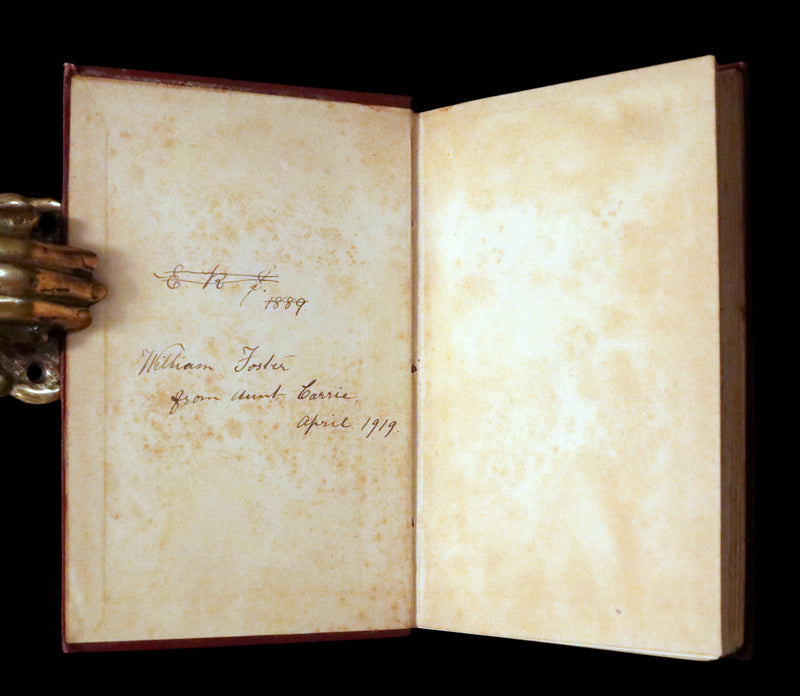 E R
1889.
William Foster
from Aunt Carrie.
April. 1919.